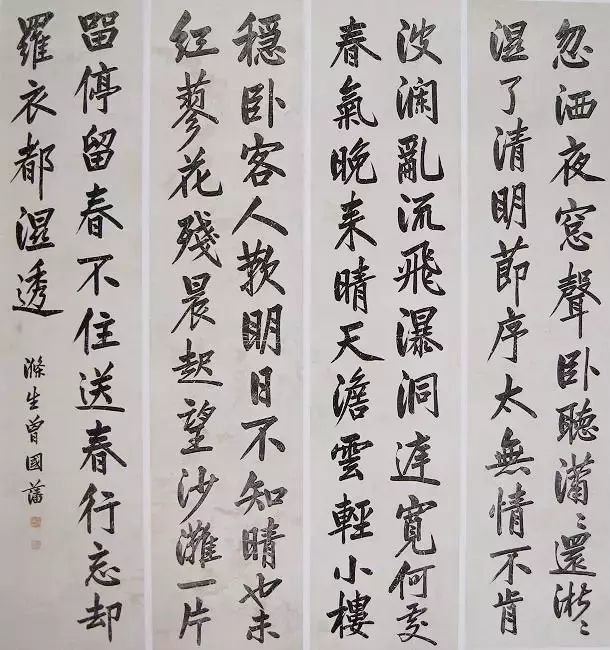 忽洒夜窓聲卧聽瀟〻還淅〻
湿了清明節序太無情不肯
波瀾亂流飛瀑洞庭寬何處
春氣晚来晴天澹雲輕小樓
穩卧客人歎明日不知晴也未
红蓼花殘晨起望沙灘一片
留停留春不住送春行忘却
羅衣都湿透
滌生曾國藩